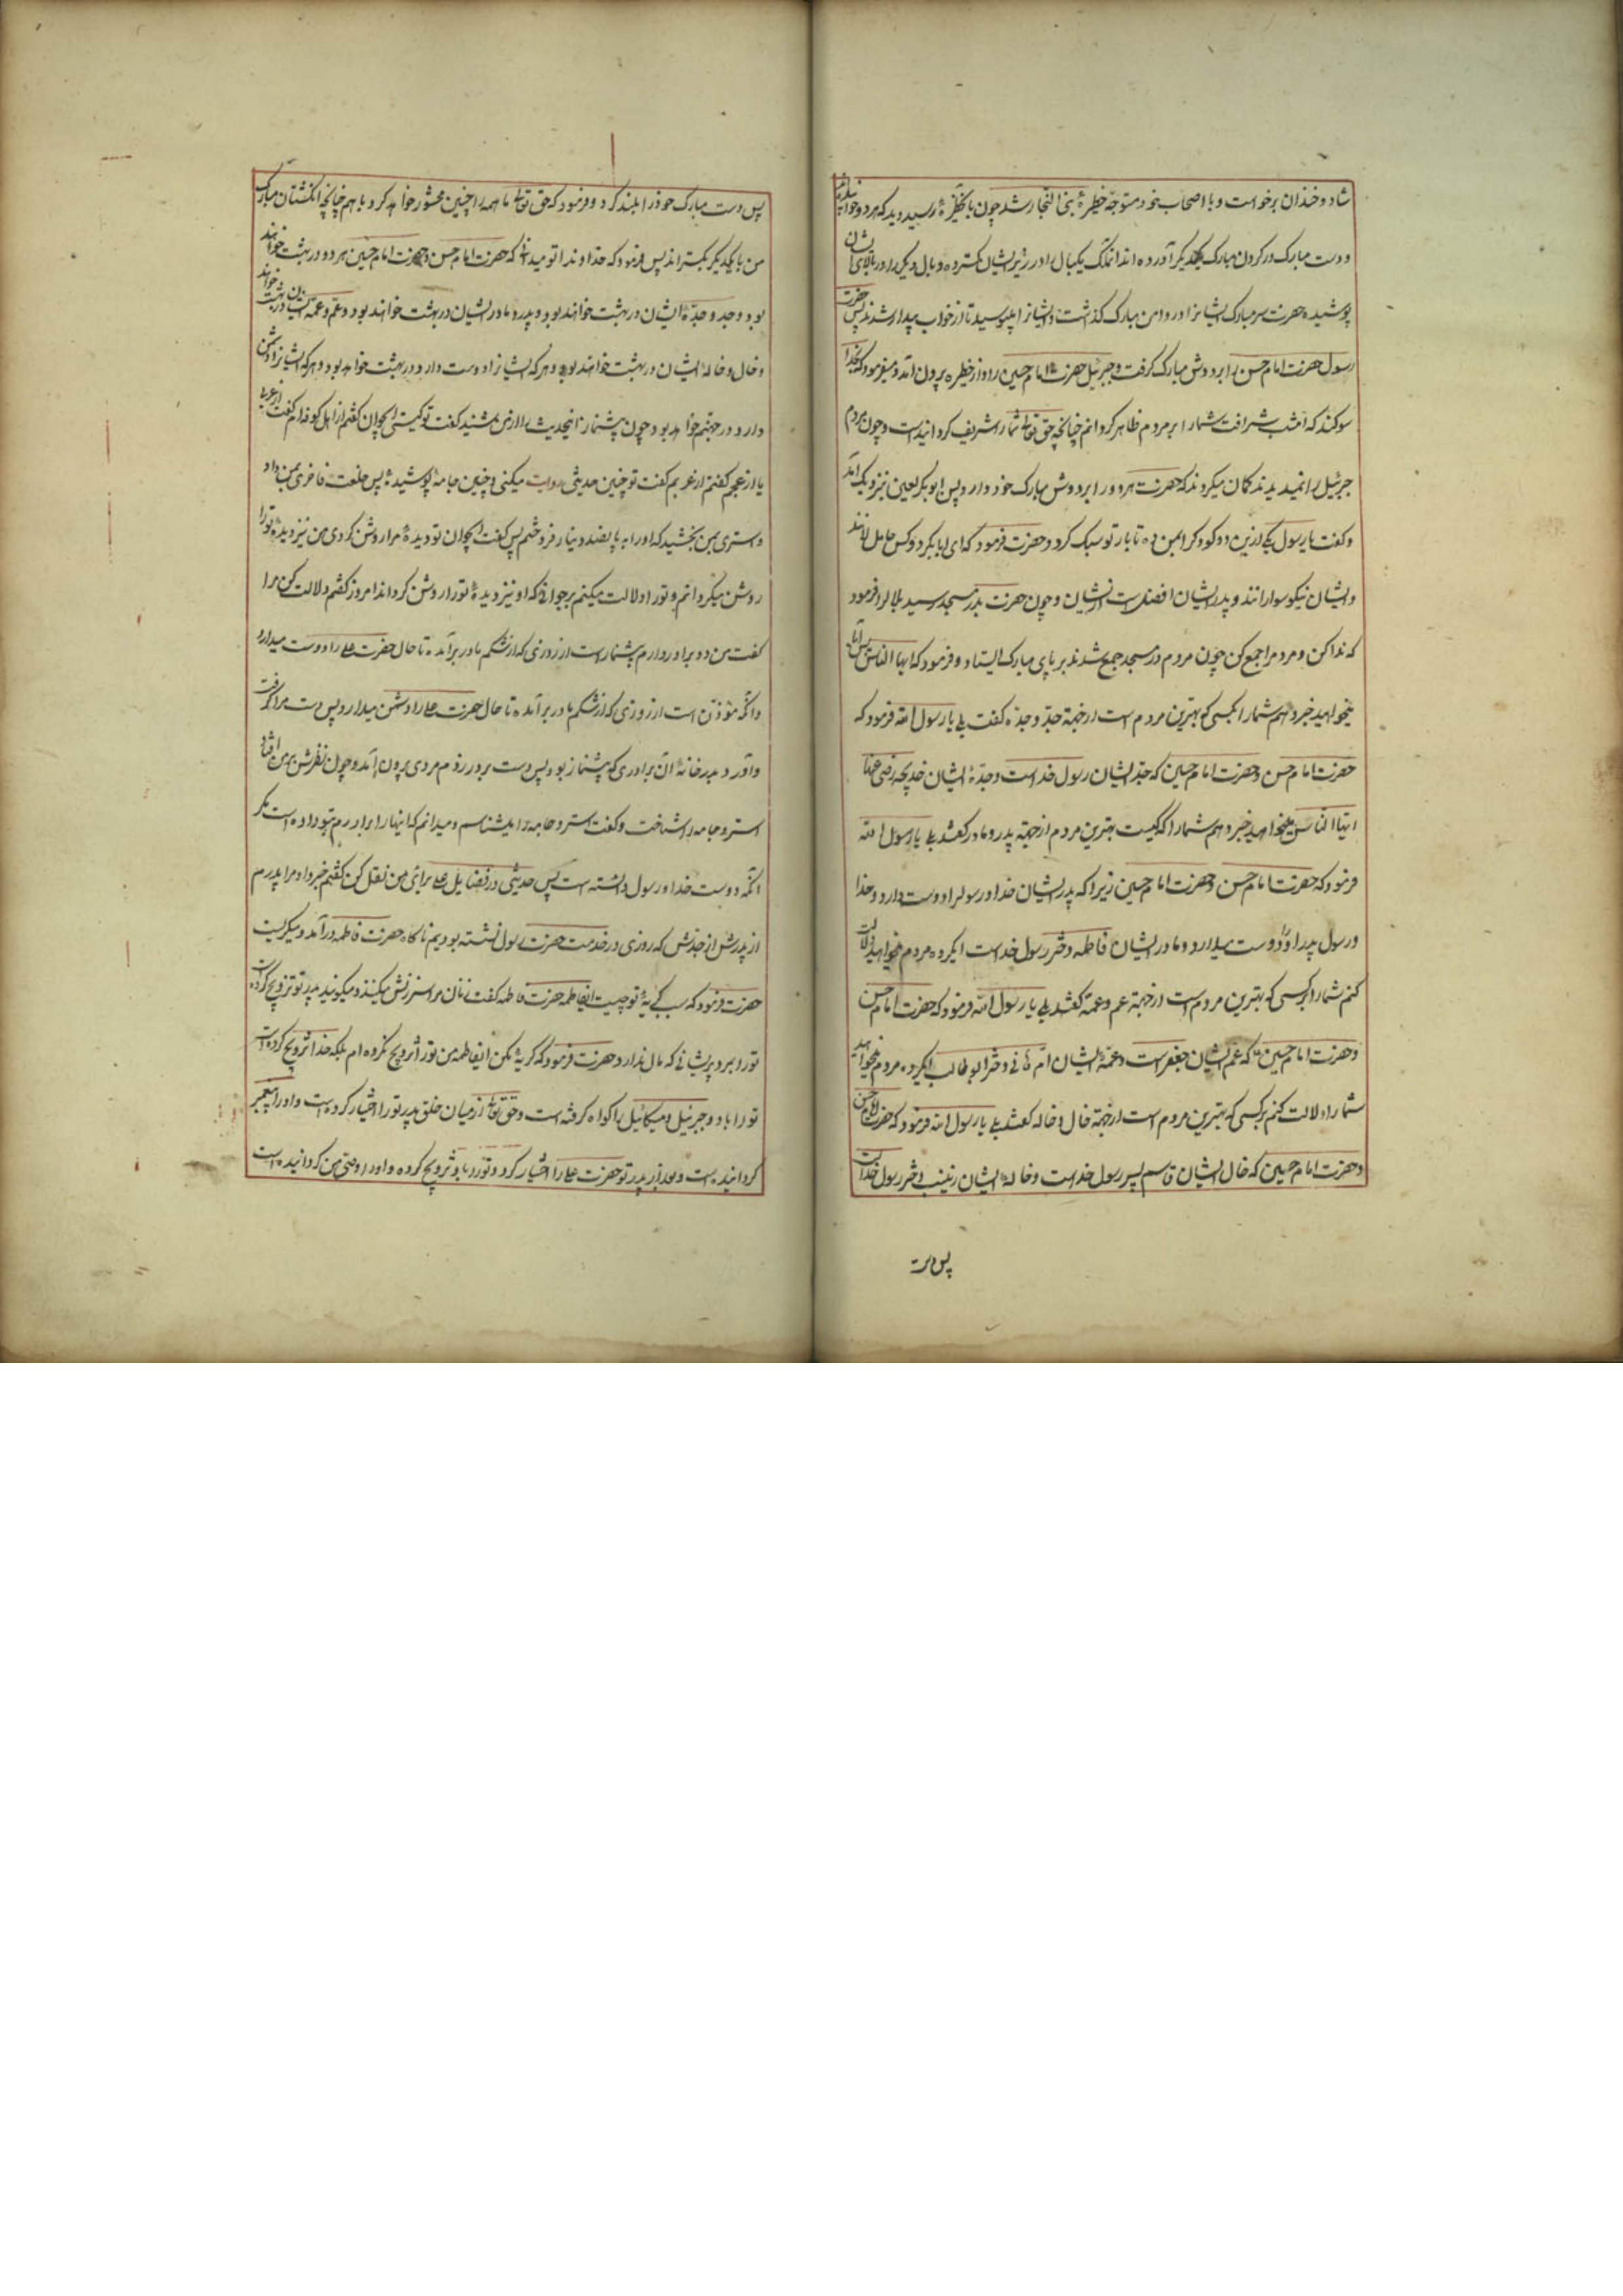 شاد و خندان برخواست و با اصحاب خود متوجّه خطیرهٔ بنی النجار شد چون بانخطیرهٔ رسید دید که هر دو خوابیده‌اند
و دست مبارک در کردن مبارک یکدیگر آورده اند انملک یکبال را در زیر ایشان کسترده و بال دیگر را در بالای ایشان
پوشیده حضرت سر مبارک ایشانرا در دامن مبارک گذاشت و ایشانرا بپوسید تا از خواب بیدار شدند پس حضرت
رسول حضرت امام حسن را بر دوش مبارک گرفت و جبرئیل حضرت امام حسین را و از خطیره بیرون آمد و میفرمود که بخدا
سوکند که امشب شرافت شما را بر مردم ظاهر کردانم چنانچه حق تعالی شما را شریف کردانیده است و چون مردم
جبرئیل را نمیدیدند کمان میکردند که حضرت هر دو را بر دوش مبارک خود دارد پس ابوبکر لعین نزدیک آمد
و کفت یا رسول یکی ازین دو کودکرا بمن ده تا بار تو سبک کردد حضرت فرمود که ای ابابکر دو کس حامل اند
و ایشان نیکو سوارانند و پدر ایشان افضلست از ایشان و چون حضرت بدر مسجد رسید بلالرا فرمود
که ندا کن و مردمرا جمع کن چون مردم در مسجد جمع شدند بر پای مبارک ایستاد و فرمود که ایها الناس
میخواهید خبر دهم شما را بکسی که بهترین مردم است از جهة جدّ و جدّه کفت بلی یا رسول الله فرمود که
حضرت امام حسن و حضرت امام حسین که جد ایشان رسول خداست و جدّهٔ ایشان خدیجه رضی عنها
ایها الناس میخواهید خبر دهم شما را که کیست بهترین مردم از جهة پدر و مادر کفتند بلی یا رسول الله
فرمود که حضرت امام حسن و حضرت امام حسین زیرا که پدر ایشان خدا و رسولرا دوست دارد و خدا
و رسول پدر او را دوست میدارد و مادر ایشان فاطمه دختر رسول خداست ایکروه مردم میخواهید دلالت
کنم شما را بر کسی که بهترین مردم است از جهة عم و عمة کفتند بلی یا رسول الله فرمود که حضرت امام حسن
و حضرت امام حسین که عم ایشان جعفر است و عمّهٔ ایشان امّ هانی دختر ابوطالب ایکروه مردم میخواهید
شما را دلالت کنم بر کسی که بهترین مردم است از جهة خال و خاله کفتند بلی یا رسول الله فرمود که حضرت امام حسن
و حضرت امام حسین که خال ایشان قاسم پسر رسول خداست و خالهٔ ایشان زینب دختر رسول خداست
پس دست
پس دست مبارک خود را بلند کرد و فرمود که حق تعالی ما همه را چنین محشور خواهد کرد با هم چنانچه انکشتان مبارک
من با یکدیکر یکسترانند پس فرمود که خداوندا تو میدانی که حضرت امام حسن و حضرت امام حسین هر دو در بهشت خواهند
بود و جد و جدّهٔ ایشان در بهشت خواهند بود و پدر و مادر ایشان در بهشت خواهند بود و عمّ و عمّهٔ ایشان در بهشت خواهند
و خال و خالهٔ ایشان در بهشت خواهند بود و هر که ایشانرا دوست دارد در بهشت خواهد بود و هر که ایشانرا دشمن
دارد در جهنم خواهد بود چون پیشنماز اینحدیث را از من شنید کفت تو کیستی ایجوان کفتم از اهل کوفه ام کفت از عربی
یا از عجم کفتم از عربم کفت تو چنین حدیثی روایت میکنی و چنین جامهٔ پوشیدهٔ پس خلعت فاخری بمن داد
و استری بمن بخشید که او را به پانصد دینار فروختم پس کفت ایجوان تو دیدهٔ مرا روشن کردی من نیز دیدهٔ تورا
روشن میکردانم و تورا دلالت میکنم بر جوانی که او نیز دیدهٔ تورا روشن کرداند امروز کفتم دلالت کن مرا
کفت من دو برادر دارم پیشنماز است از روزی که از شکم مادر برآمده تا حال حضرت علی را دوست میدارد
و آنکه مؤذن است از روزی که از شکم مادر برآمده تا حال حضرت علی را دشمن میدارد پس دست مرا کرفت
و آورد بدرخانهٔ آن برادری که پیشنماز بود پس دست بر در زدم مردی بیرون آمد و چون نظرش بمن افتاد
استر و جامه را شناخت و کفت استر و جامه را میشناسم و میدانم که اینها را برادرم بتو داده است مکر
آنکه دوست خدا و رسول دانسته است پس حدیثی در فضایل علی برای من نقل کن کفتم خبر داد مرا پدرم
از پدرش از جدّش که روزی در خدمت حضرت رسول نشسته بودیم ناکاه حضرت فاطمه درآمد و میکریست
حضرت فرمود که سبب کریهٔ تو چیست ایفاطمه حضرت فاطمه کفت زنان مرا سرزنش میکنند و میکویند پدر تو تزویج کرده
تورا بمرد پریشانی که مال ندارد حضرت فرمود که کریه مکن ایفاطمه من تورا تزویج نکرده ام بلکه خدا تزویج کرده است
تورا باو و جبرئیل و میکائیل را کواه کرفته است و حق تعالی از میان خلق پدر تورا اختیار کرده است و او را پیغمبر
کردانیده است و بعد از پدر تو حضرت علی را اختیار کرد و تورا باو تزویج کرده و او را وصّی من کردانیده است